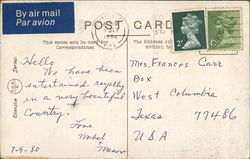 By air mail
Par avion
POST CARD
This space may be used for
Correspondence.
Hello
We have been
entertained royally
in a very beautiful
Country.
Love
Mabel
7-9-80
Mrs. Frances Carr
Box
West Columbia
Texas 77486
U.S.A